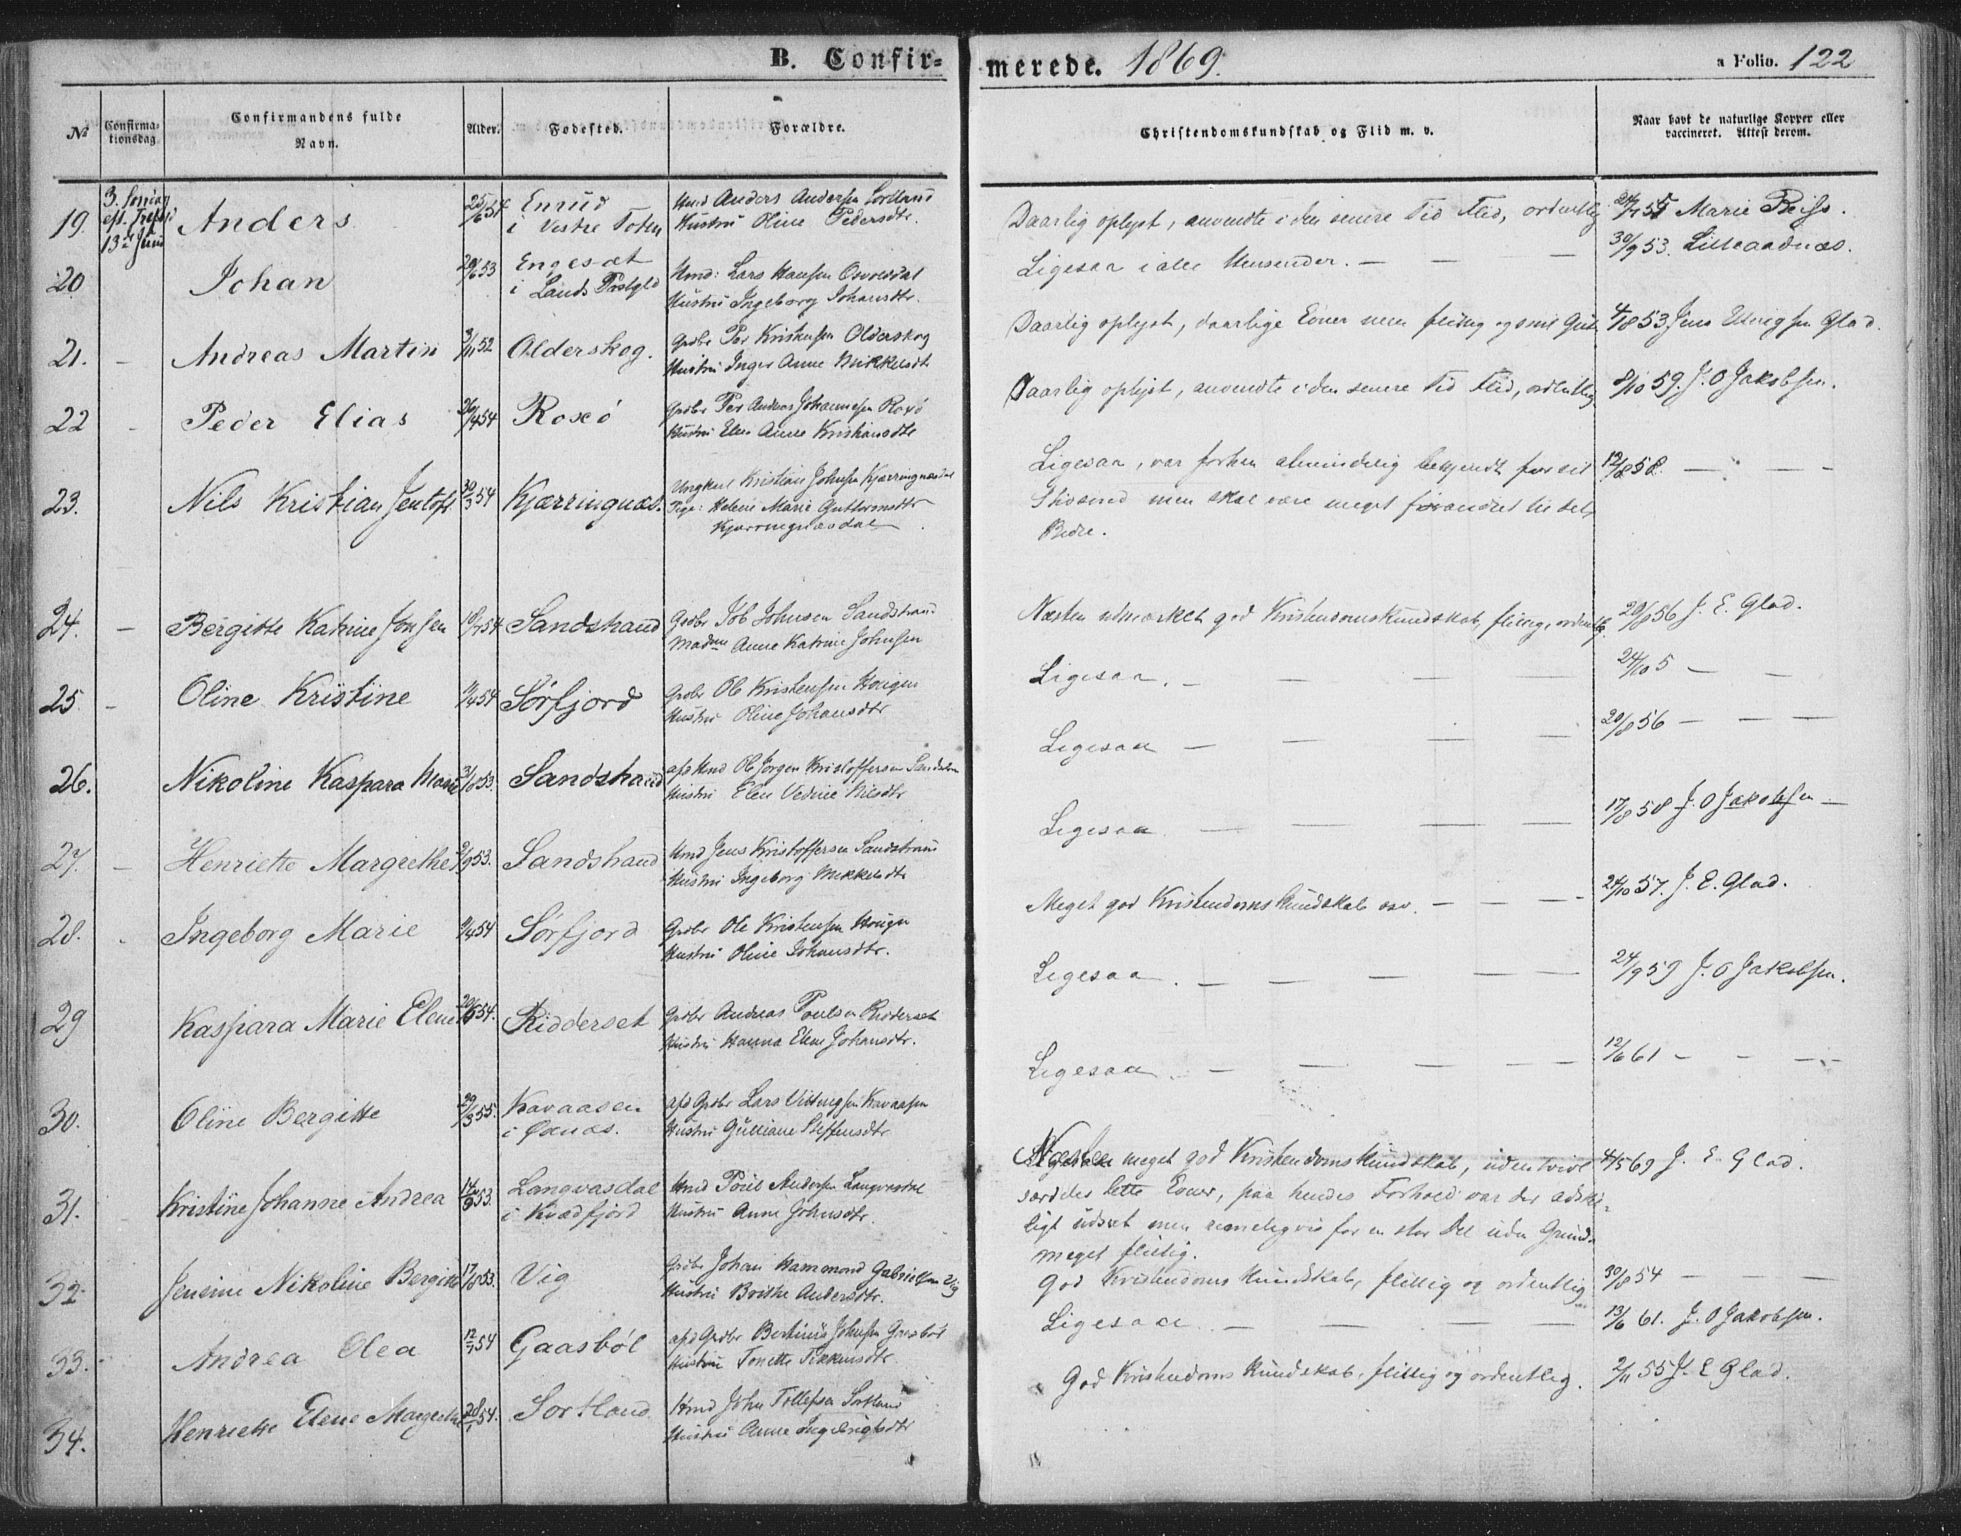 B. Confir-
merede. 1869.
a Folio. 122
No
Confirma-
tionsdag.
Confirmandens fulde
Navn.
Alder.
Fødested.
Forældre.
Christendomskundskab og Flid m. v.
Naar havt de naturlige Kopper eller
vaccineret. Attest derom.
19. 3. Sønd. eft. Trefold. 13de Juni Anders 25/6 54 i Vestre Toten
Hmd Anders Andersen Sortland
Hustru Oline Pedersdtr.
Daarlig oplyst, anvendte i den senere Tid Flid, ordentlig
55 Marie Reiss.
20. Johan 29/6 53 Engesæt i Lands Præstgld
Hmd: Lars Hansen
Hustru Ingeborg Johansdtr.
Ligesaa i alle Henseender. — — —
30/9 53. Lilleaadnæs.
21. — Andreas Martin 3/11 52 Olderskog.
Grdbr Per Kristensen Olderskog
Hustru Inger Anne Mikkelsdtr
Daarlig oplyst, daarlige Evner men flittig og
4/8 53 Jens Glad.
22 - Peder Elias 26/4 54 Roksø
Grdbr Per Andreas Johannesen
Hustru Elen Anne Kristiansdtr
Daarlig oplyst, anvendte i den senere Tid Flid, ordentlig
8/10 59. J. O Jakobsen.
23. Nils Kristian Jentoft 30/3 54 Kjærringnæs.
Ungkarl Kristian Johnsen Kjærringnæsdal
Pige: Helene Marie Guttormsdtr
Kjærringnæsdal
Ligesaa, var forhen almindelig bekjendt for sit
men skal være meget forandret til det
Bedre.
12/8 58. — — —
24. — Bergitte Katrine Jonsen 10/7 54 Sandstrand
Grdbr Job Johnsen Sandstrand
Madm Anne Katrine Johnsen
Næsten udmærket god Kristendomskundskab, flittig, ordentlig.
20/8 56 J. E. Glad.
25 - Oline Kristine 9/4 54 Sørfjord
Grdbr Ole Kristensen Hougen
Hustru Oline Johansdtr
Ligesaa. — — — —
24/10 5 — —
26. Nikoline Kaspara Marie 31/10 53. Sandstrand
afd Hmd Ole Jørgen Kristoffersen
Hustru Elen Nilsdtr
Ligesaa — — — —
20/8 56 — — —
27. — Henriette Margrethe 2/9 53. Sandstrand
Hmd Jens Kristoffersen Sandstrand
Hustru Ingeborg Mikkelsdtr
Ligesaa. — — — —
17/8 58 J. O Jakobsen —
28. - Ingeborg Marie 9/4 54 Sørfjord
Grdbr Ole Kristensen Hougen
Hustru Oline Johansdtr.
Meget god Kristendomskundskab osv. — — —
24/10 57. J. E. Glad.
29 Kaspara Marie Elene 54. Ridderset
Grdbr Andreas Poulsen Ridderset
Hustru Hanna Elene Johansdtr.
Ligesaa. — — — —
24/9 59 J. O Jakobsen.
30. Oline Bergitte 29/3 55. Kavaasen i
afd Grdbr Lars Kavaasen
Hustru Gulliane Steffensdtr
Ligesaa. — — — —
12/6 61 - - - -
31. Kristine Johanne Andrea 14/9 53. Langvasdal i Kvædfjord
Hmd Poul Andersen Langvasdal
Hustru Anne Johnsdtr.
Næsten meget god Kristendomskundskab, uden Tvivl
særdeles lette Evner, paa hendes Forhold var der adski-
ligt udsat men rimeligvis for en stor Del uden Grund
meget flittig.
4/5 69 J. E. Glad.
32. Jensine Nikoline Bergitte 17/10 53. Vig
Grdbr Johan Hammond Gabrielsen Vig
Hustru Andersdtr.
God Kristendomskundskab, flittig og ordentlig
30/8 54 — — —
33. Andrea Olea 12/7 54 Gaasbøl
afd Grdbr Bertinus Johnsen
Hustru Tonette
Ligesaa. — — — —
13/6 61. J. O Jakobsen.
34. Henriette Elene Margrethe 54. Sortland
Hmd John Tollefsen Sortland
Hustru Anne Ingebrigtsdtr
God Kristendomskundskab, flittig og ordentlig.
2/11 55 J. E Glad.